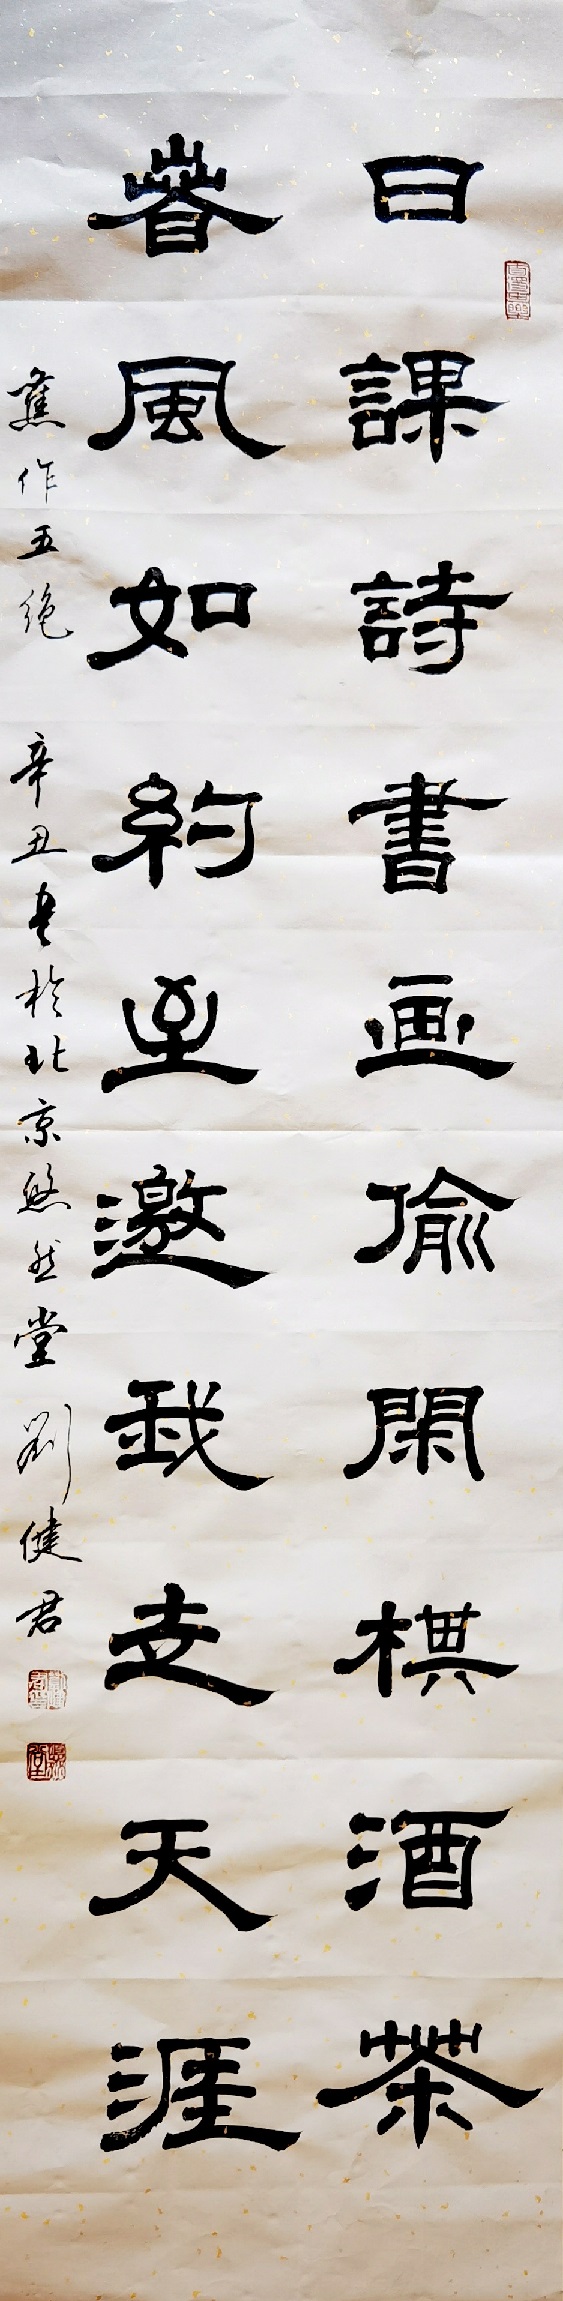 日課詩書画偷閑棋酒茶
春風如約至邀我走天涯
舊作五绝 辛丑書於北京悠然堂劉健君